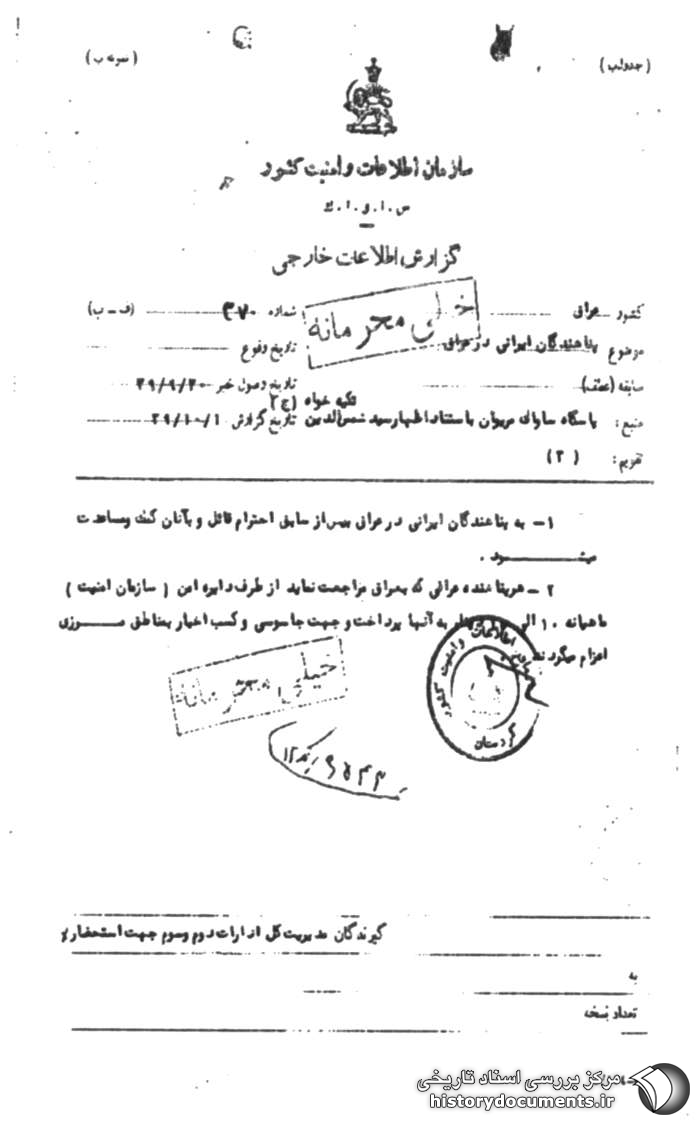 (جدول ب)
(نمونه ب)
سازمان اطلاعات و امنیت کشور
س.ا.و.ا.ک
گزارش اطلاعات خارجی
کشور عراق شماره ۳۷۰ (ف - ب)
خیلی محرمانه
موضوع پناهندگان ایرانی در عراق تاریخ وقوع
سابقه (عطف) تاریخ وصول خبر ۳۹/۹/۳۰
تکیه خواه (ج ۲)
منبع: پاسگاه ساواک مریوان باستناد اظهار سید شمس‌الدین تاریخ گزارش ۳۹/۱۰/۱
تقویم: (۲)
۱- به پناهندگان ایرانی در عراق بیش از سابق احترام قائل و بآنان کمک ومساعدت
میشود.
۲- هرپناهنده عراقی که بعراق مراجعت نماید از طرف دایره امن (سازمان امنیت)
ماهیانه ۱۰ الی به آنها پرداخت و جهت جاسوسی و کسب اخبار بمناطق مرزی
اعزام میگردند
خیلی محرمانه
اطلاعات و امنیت کشور
کردستان
گیرندگان مدیریت کل ادارات دوم وسوم جهت استحضار
به
تعداد نسخه
مرکز بررسی اسناد تاریخی
historydocuments.ir